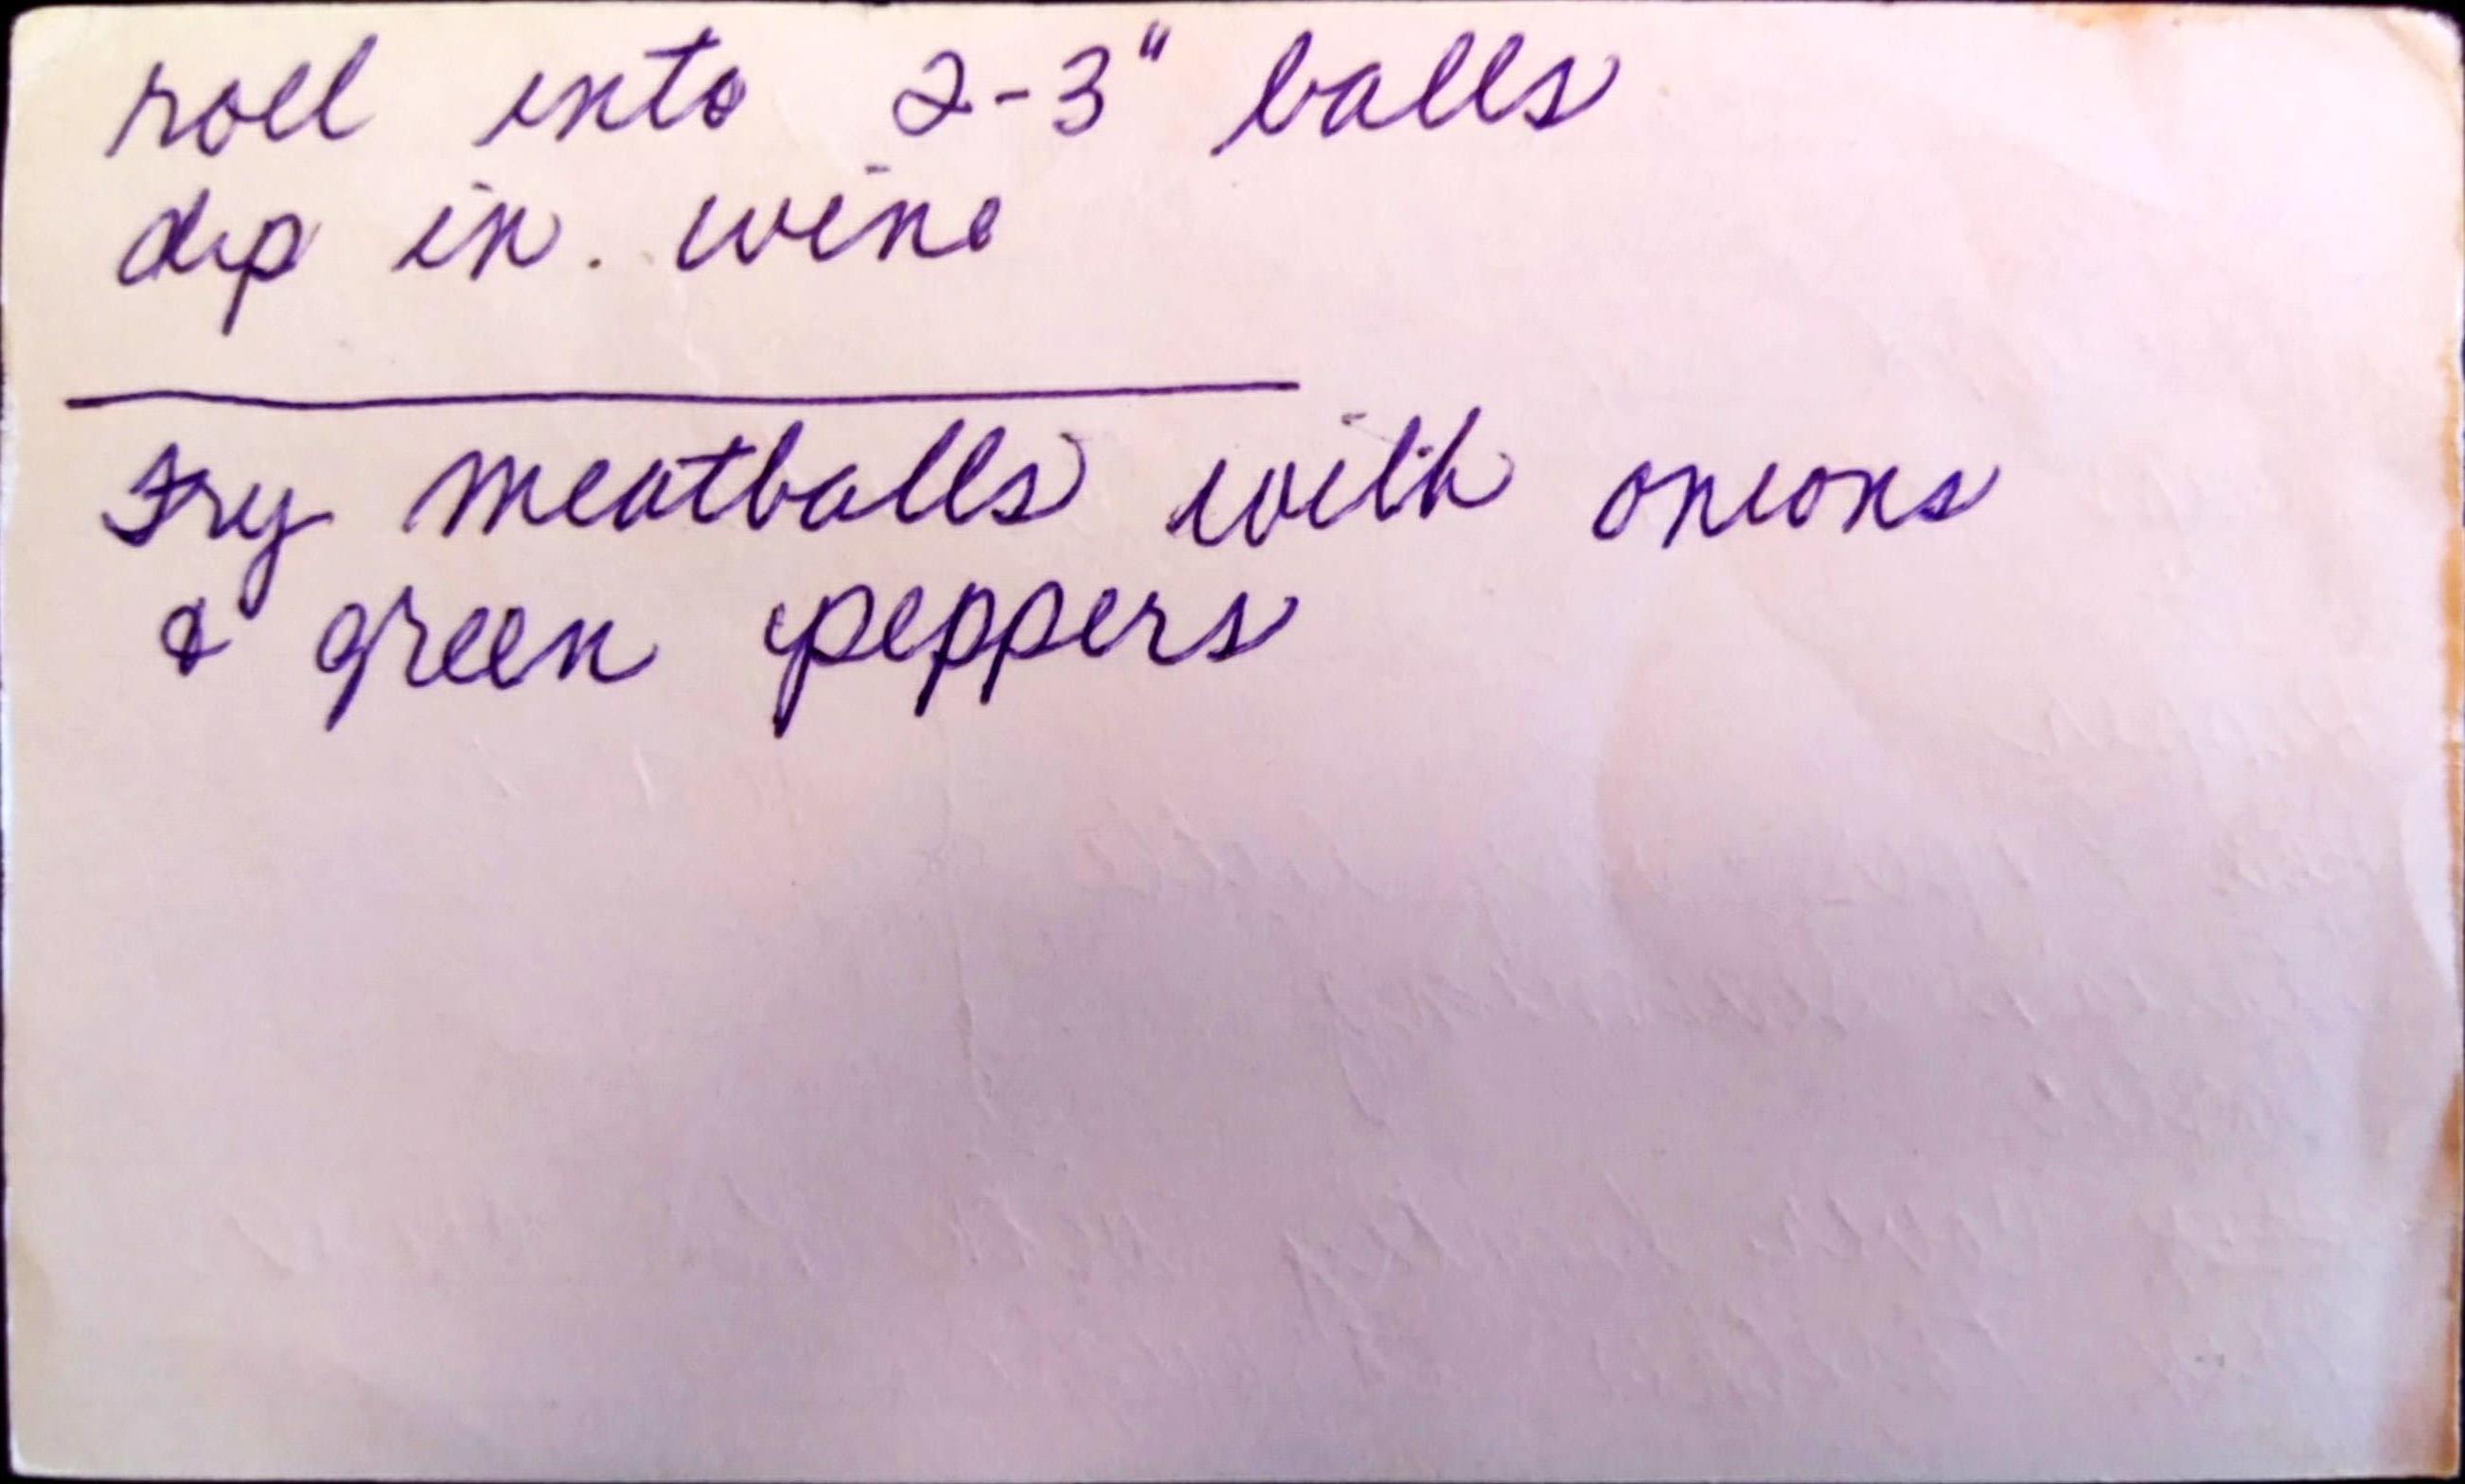 roll into 2-3" balls
dip in wine
Fry meatballs with onions
& green peppers